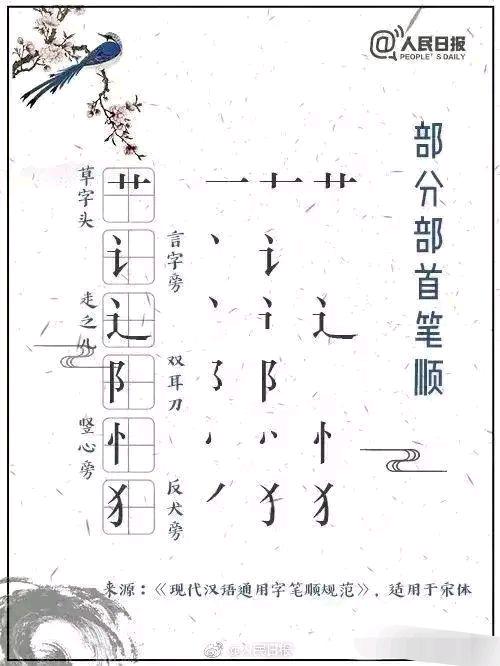 @人民日报
PEOPLE'S DAILY
部分部首笔顺
草字头 艹 一 十 艹
讠 言字旁 丶 讠
走之儿 辶 丶 辶
阝 双耳刀 ㇌ 阝
竖心旁 忄 忄
犭 反犬旁 丿 犭
来源：《现代汉语通用字笔顺规范》，适用于宋体
@人民日报